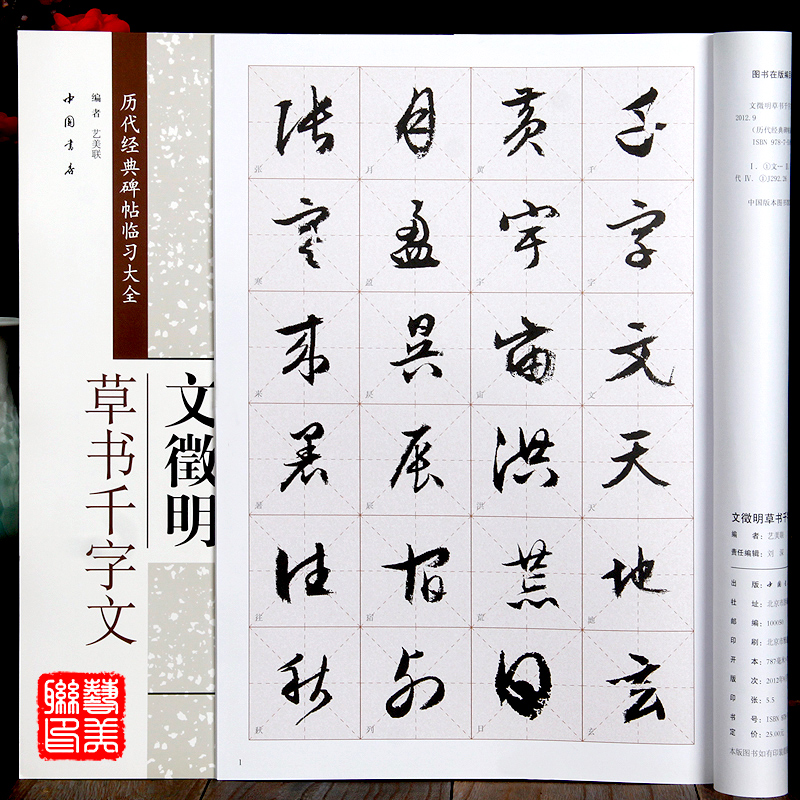 历代经典碑帖临习大全
编者 艺美联
中国书店
文徵明
草书千字文
藝美
聯印
千字文天地玄
黄宇宙洪荒日
月盈昃辰宿列
张寒来暑往秋
1
图书在版编
文徵明草书千
2012.9
(历代经典碑
ISBN 978-7
中国版本图书
文徵明草书千
编 者:艺美联
责任编辑:刘
出 版:中国
社 址:北京市
邮 编:100050
印 刷:北京市
开 本:787毫米
版 次:2012年
印 张:5.5
书 号:ISBN 978
定 价:25.00
本版图书如有印装